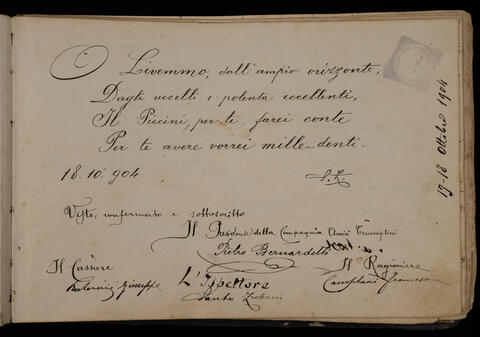 O Livemmo, dall'ampio orizzonte,
Dagli uccelli e polenta eccellenti,
Il Piccini, per te, farei conte
Per te avere vorrei mille...denti.
18.10.904
Visto, confermato e sottoscritto
Il Presidente della Compagnia Amici Trumplini
Pietro Bernardelli
Il Cassiere
L'Ispettore
Il Ragioniere
Giuseppe
Santo
Francesco
19-18 Ottobre 1904